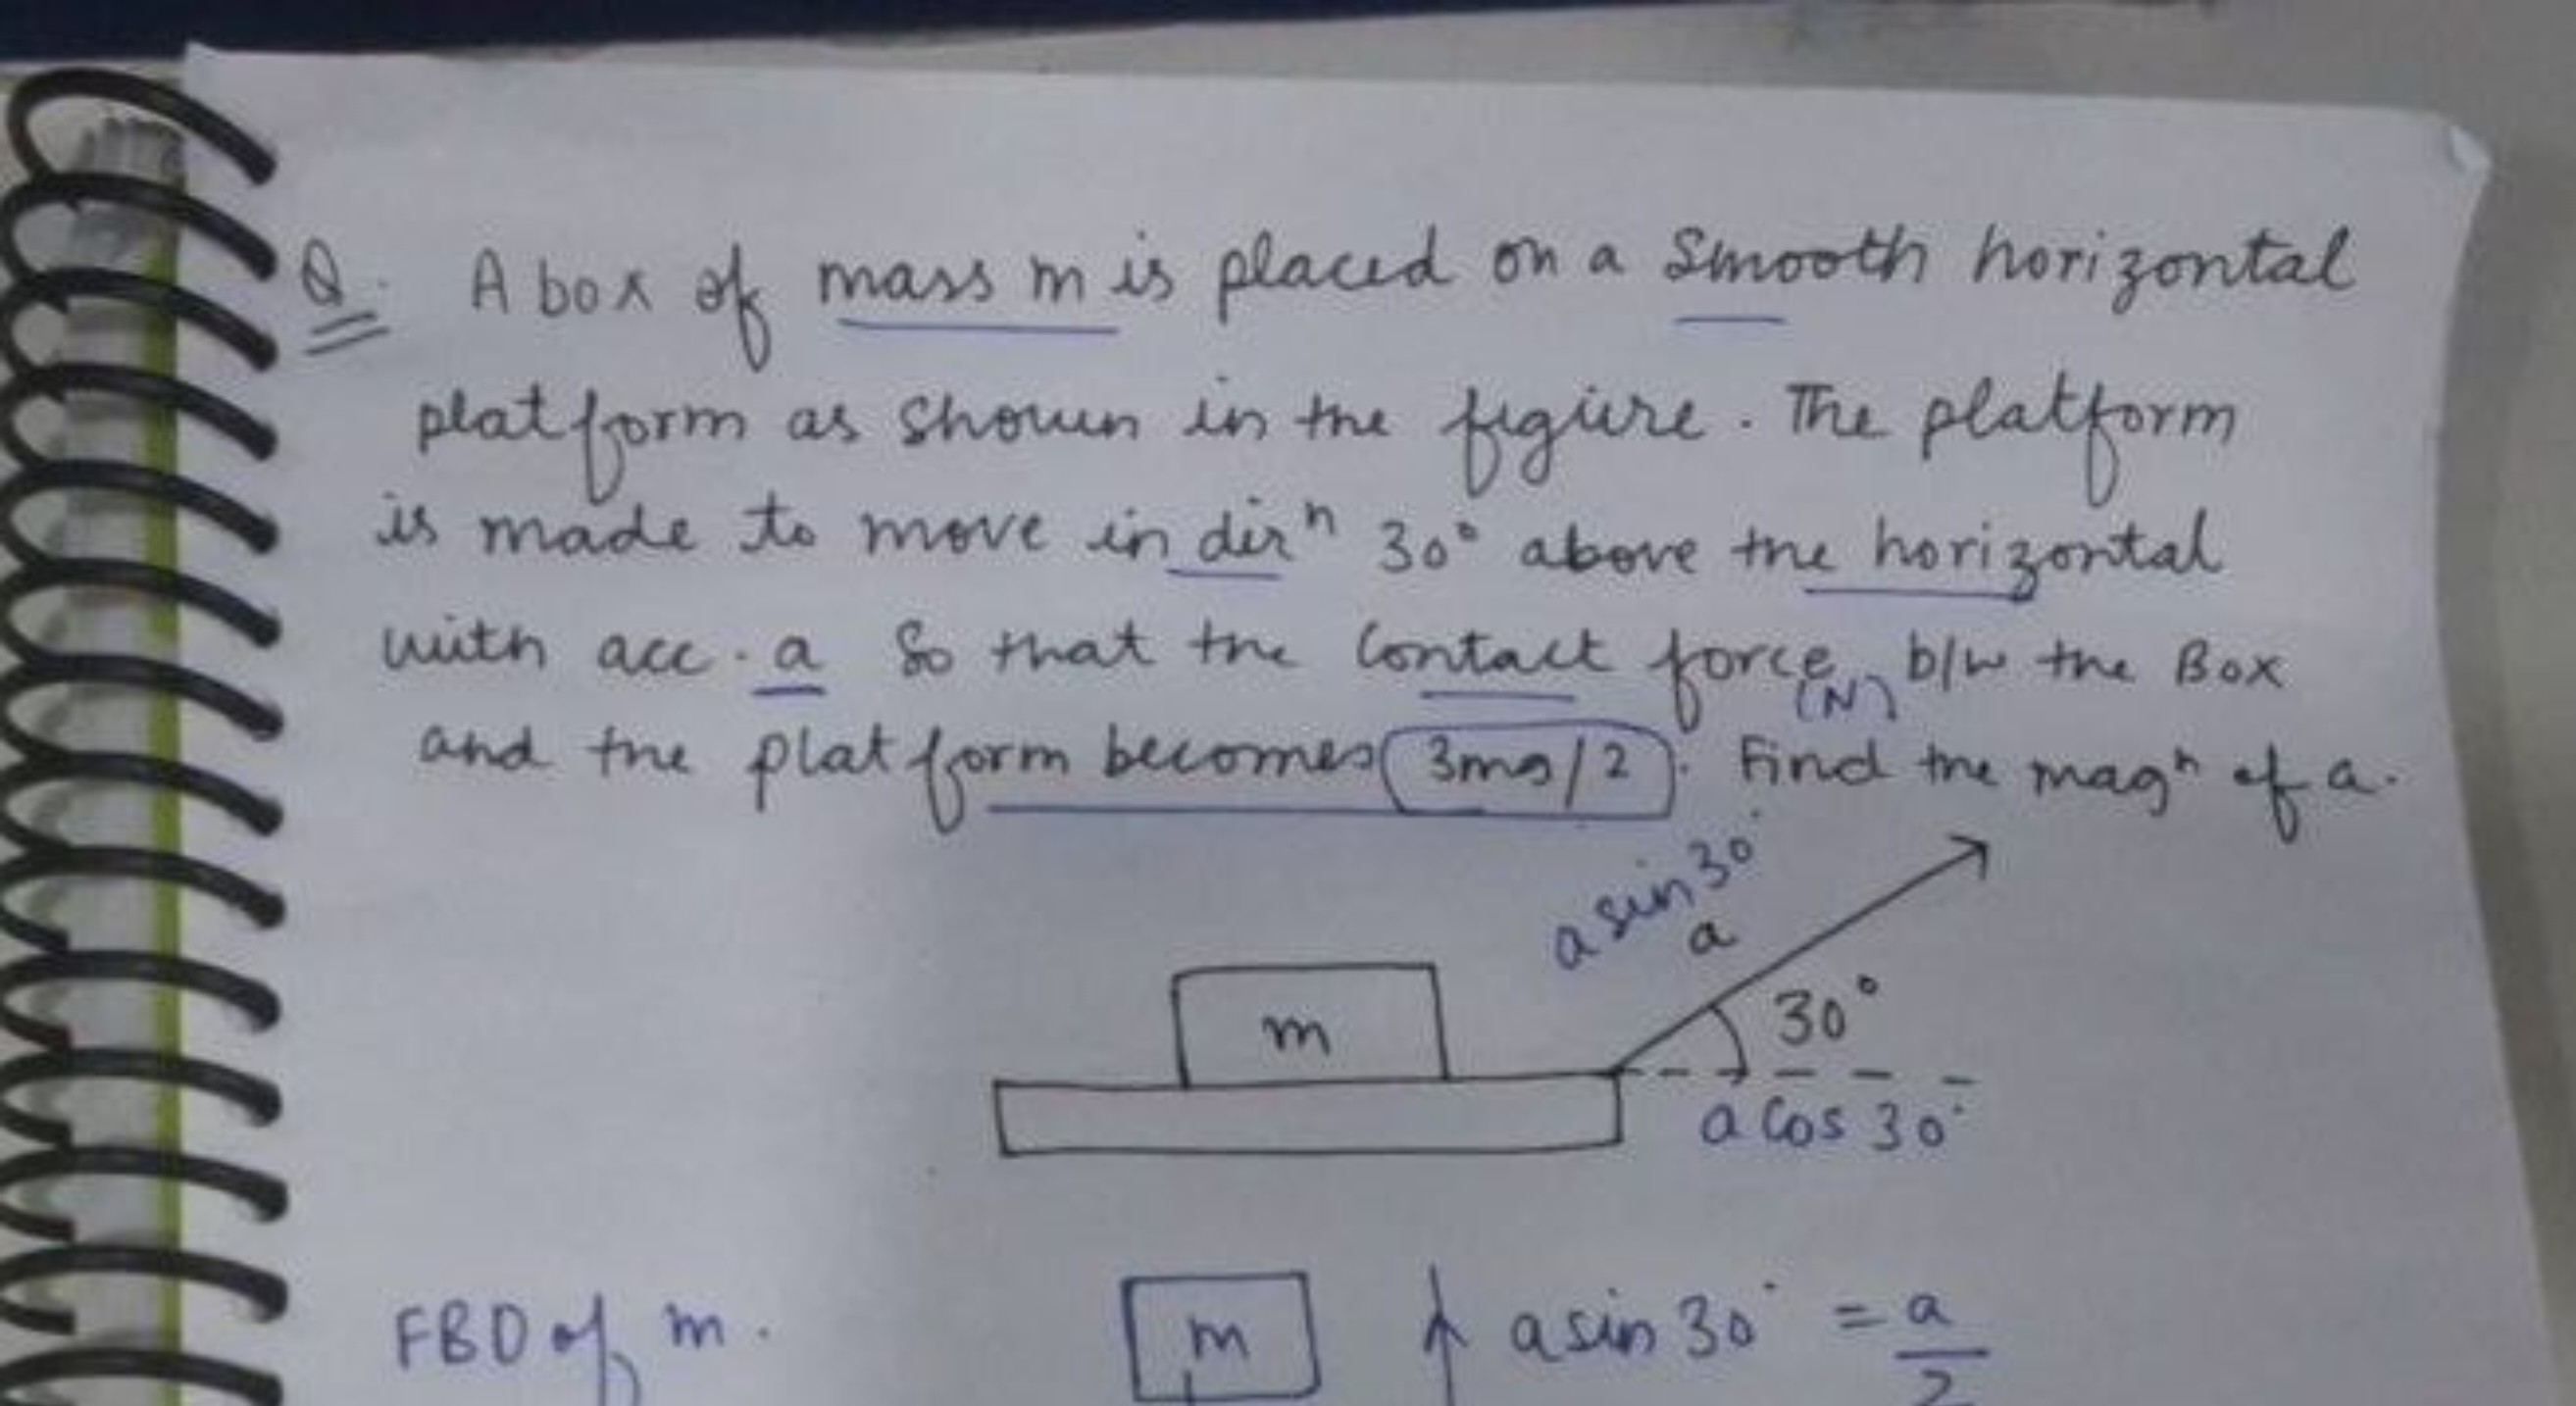 Q. A box of mass m is placed on a Smooth horizontal
platform as shown in the figure. The platform
is made to move in dirⁿ 30° above the horizontal
with acc. a So that the Contact force (N) b/w the Box
and the platform becomes 3mg/2. Find the magⁿ of a.
a sin 30°
a
m
30°
a Cos 30°
FBD of m.
m
a sin 30° = a/2